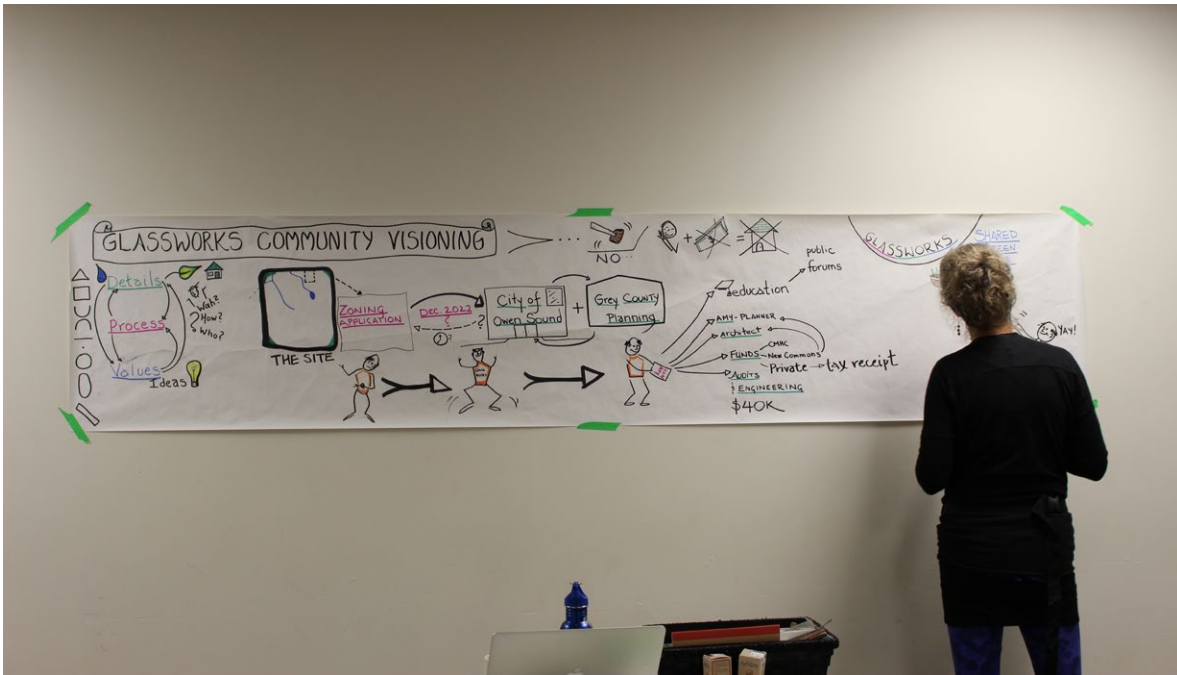 GLASSWORKS COMMUNITY VISIONING
Details
Process
Values
Ideas
How?
Who?
THE SITE
ZONING
APPLICATION
DEC. 2022
?
City of
Owen Sound
+
Grey County
Planning
NO...
+
=
education
public
forums
AMY-PLANNER
Architect
FUNDS
CMHC
New Commons
Private
tax receipt
AUDITS
ENGINEERING
$40K
GLASSWORKS
SHARED
YAY!